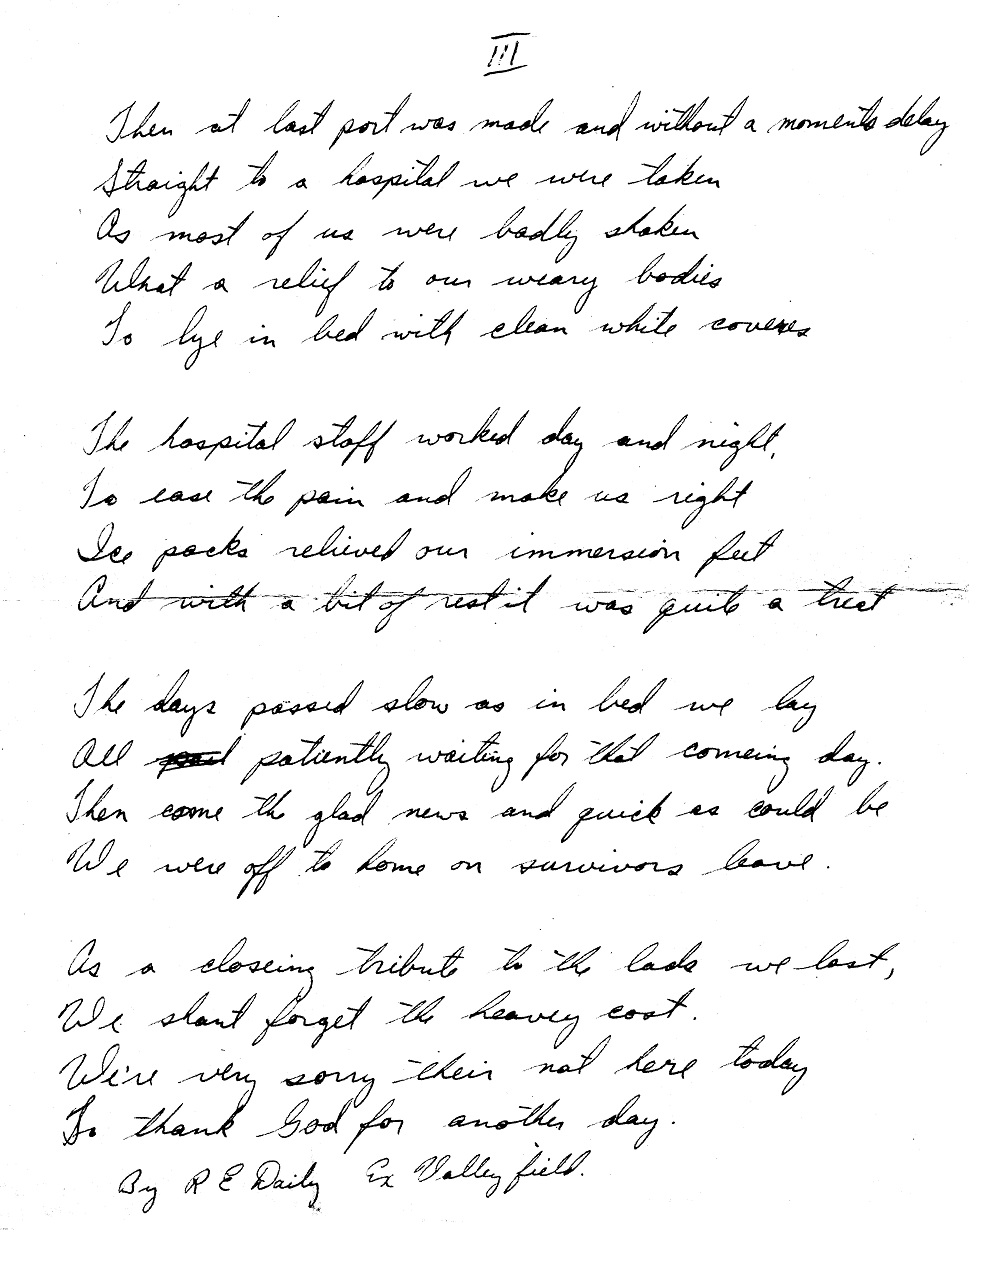 III
Then at last port was made and without a moments delay
Straight to a hospital we were taken
As most of us were badly shaken
What a relief to our weary bodies
To lye in bed with clean white coveres
The hospital staff worked day and night,
To ease the pain and make us right
Ice packs relieved our immersion feet
And with a bit of rest it was quite a treat
The days passed slow as in bed we lay
All patiently waiting for that comeing day.
Then come the glad news and quick as could be
We were off to home on survivors leave.
As a closeing tribute to the lads we lost,
We shant forget the heavey cost.
We're very sorry their not here today
To thank God for another day.
By R E Daily Ex Valleyfield.